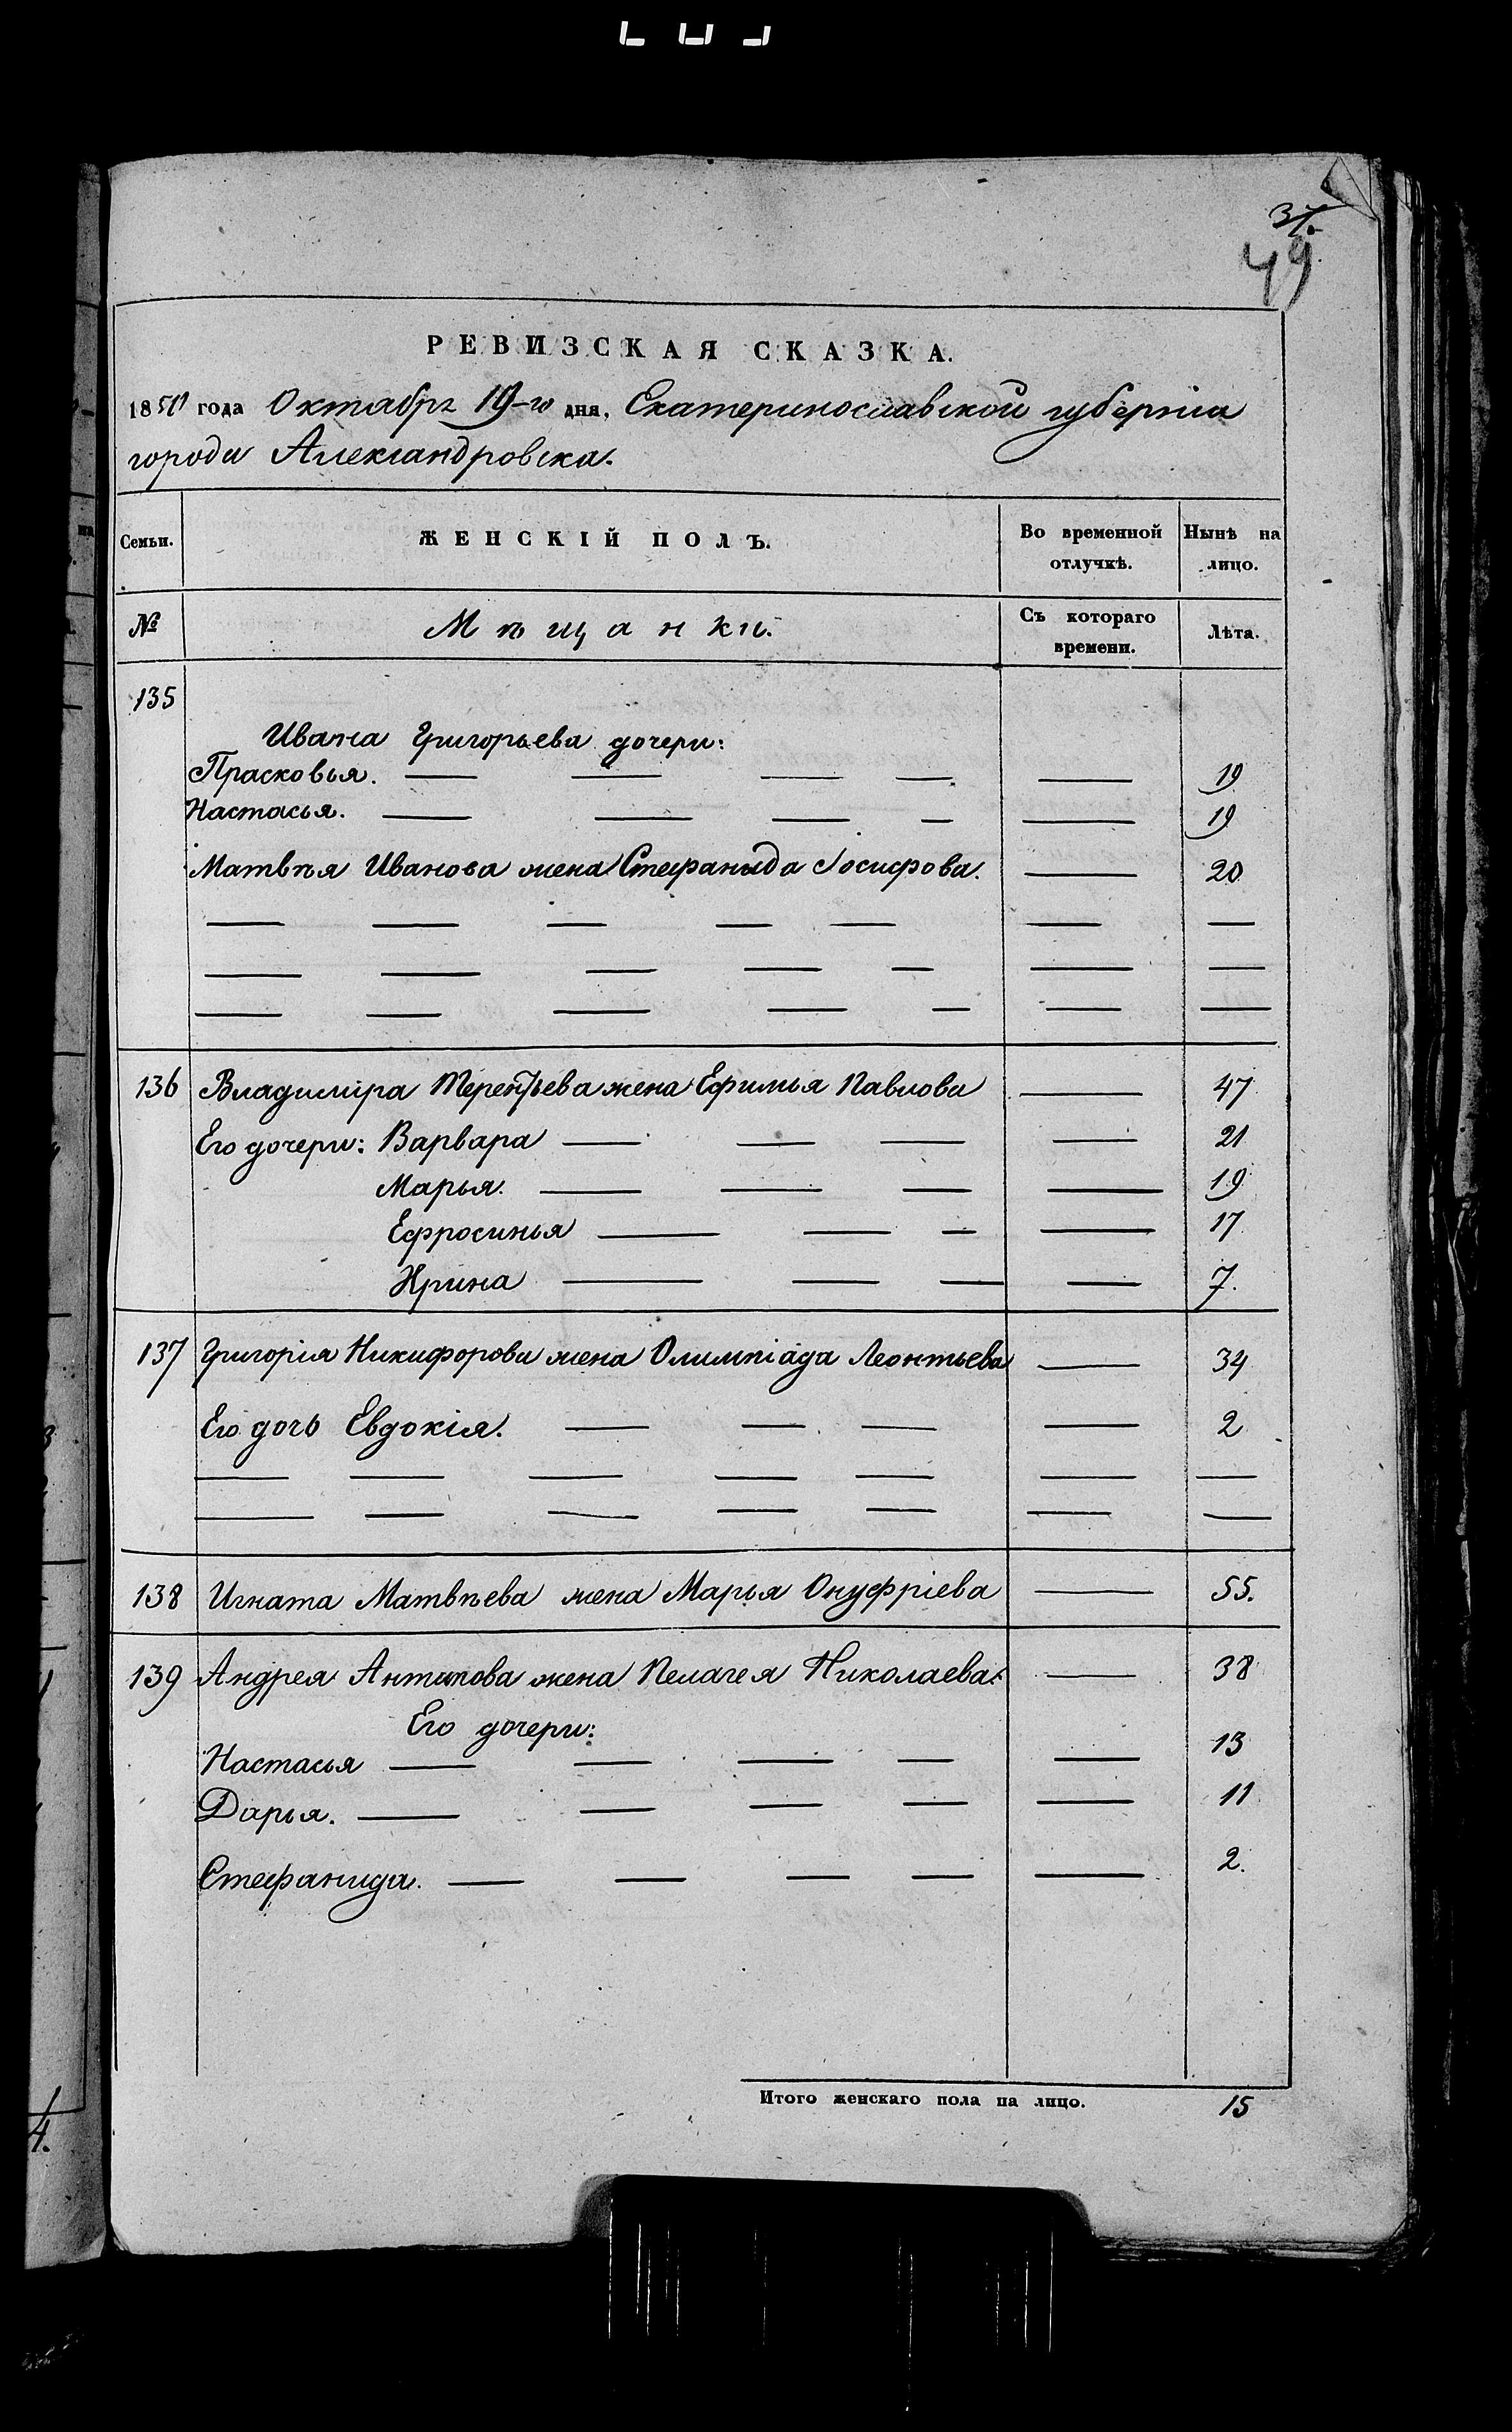 37.
49
РЕВИЗСКАЯ СКАЗКА.
1850 года Октабря 19-го дня, Екатеринославской губерніи
города Александровска.
Семьи. ЖЕНСКІЙ ПОЛЪ. Во временной отлучкѣ. Нынѣ на лицо.
№ Мѣщанки. Съ котораго времени. Лѣта.
135
Ивана Григорьева дочери:
Прасковья. — — — — — 19
Настасья. — — — — — 19
Матвѣя Иванова жена Стефанида Іосифова. — 20
— — — — — — —
— — — — — — —
— — — — — — —
136 Владиміра Терентьева жена Ефимья Павлова — 47
Его дочери: Варвара — — — — 21
Марья. — — — — 19
Ефросинья — — — — 17
Ирина — — — — 7.
137 Григорія Никифорова жена Олимпіада Леонтьева — 34
Его дочь Евдокія. — — — — 2
— — — — — — —
— — — — — — —
138 Игната Матвѣева жена Марья Онуфріева — 55.
139 Андрея Антипова жена Пелагея Николаева. — 38
Его дочери:
Настасья — — — — — 13
Дарья. — — — — — 11
Стефанида. — — — — — 2.
Итого женскаго пола на лицо. 15